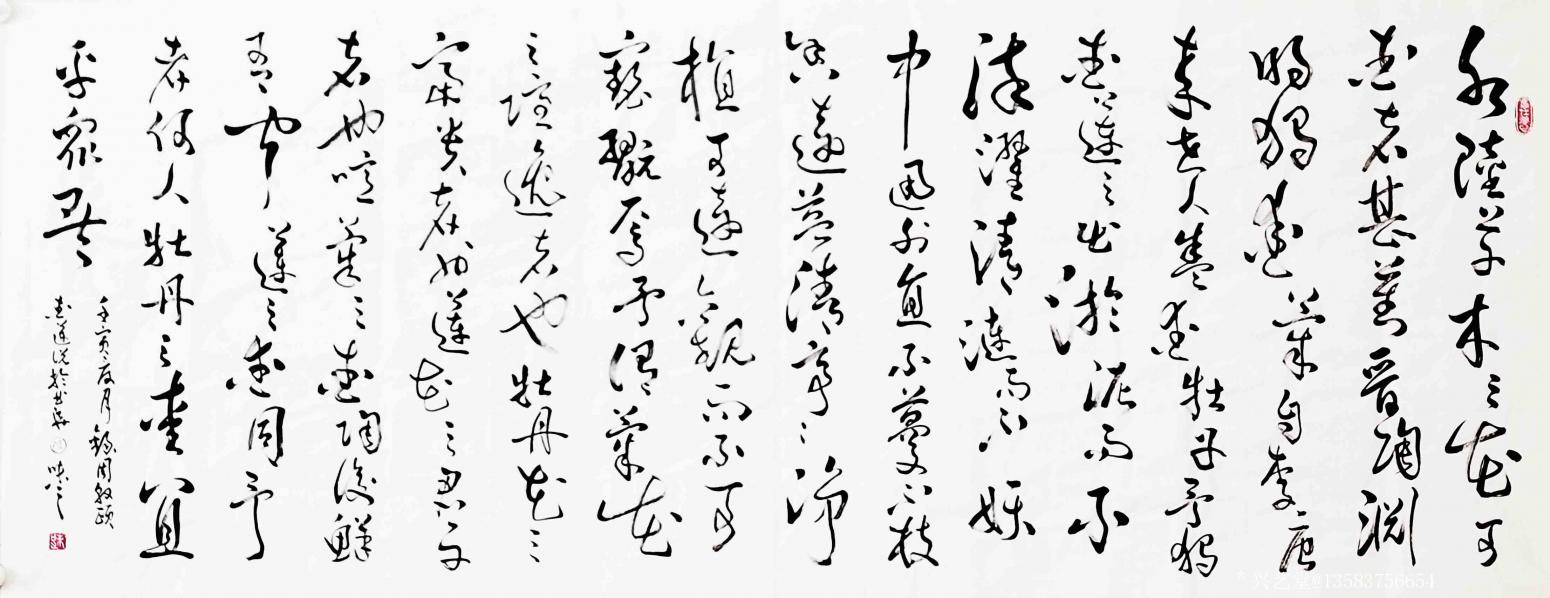 水陸草木之花可
愛者甚蕃晉陶淵
明獨愛菊自李唐
來世人盛愛牡丹予獨
愛蓮之出淤泥而不
染濯清漣而不妖
中通外直不蔓不枝
香遠益清亭亭淨
植可遠觀而不可
褻翫焉予謂菊花
之隱逸者也牡丹花之
富貴者也蓮花之君子
者也噫菊之愛陶後鮮
有聞蓮之愛同予
者何人牡丹之愛宜
乎眾矣
壬寅月錄周敦頤
愛蓮說於
兴艺堂@13583756654